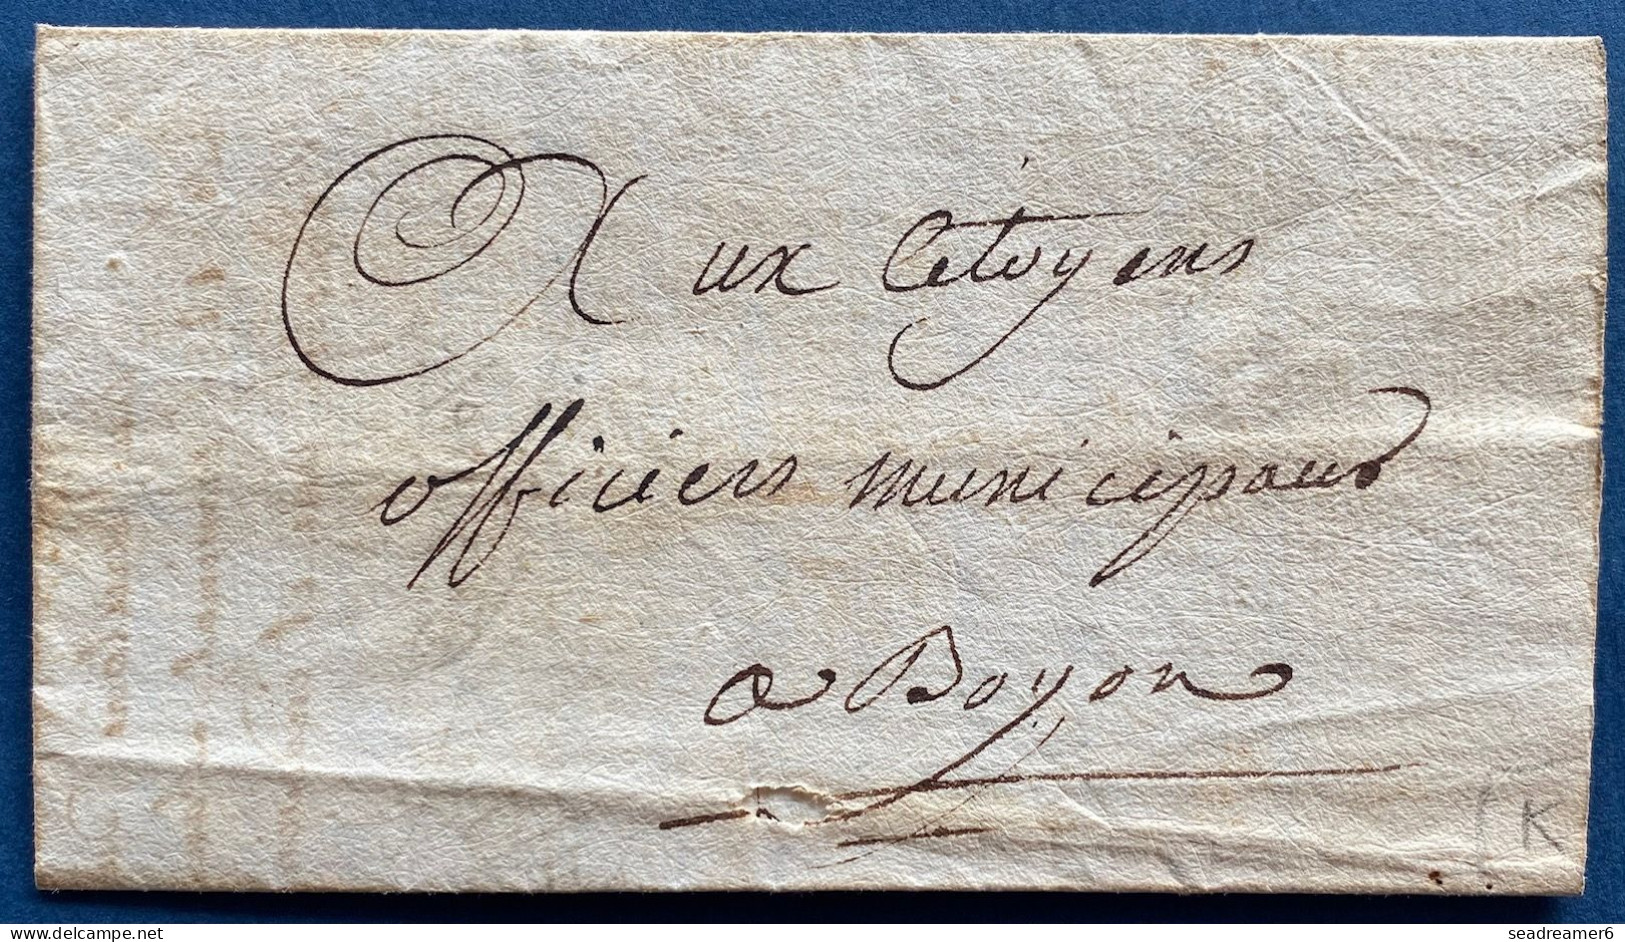 Aux Citoyens
officiers municipaux
a Boyon
K
delcampe.net
seadreamer6